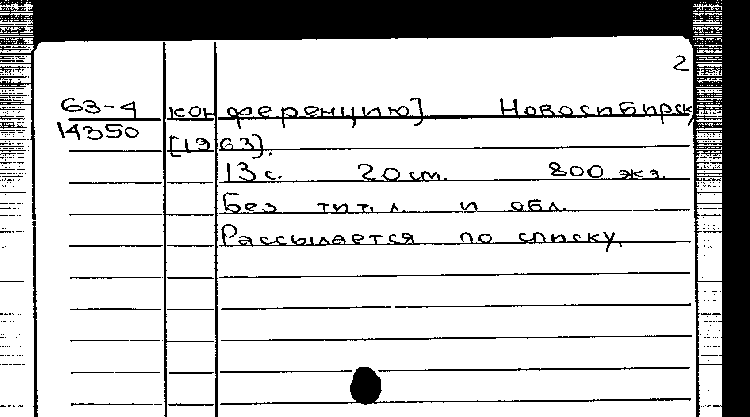 2
63-4 конференцию] Новосибирск,
14350 [1963].
13 с. 20 см. 200 экз.
Без тит. л. и обл.
Рассылается по списку.